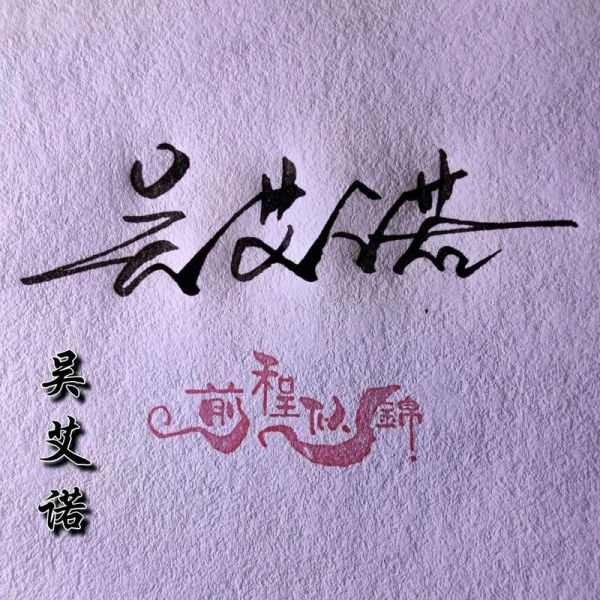 吴艾诺
吴艾诺
前程似錦